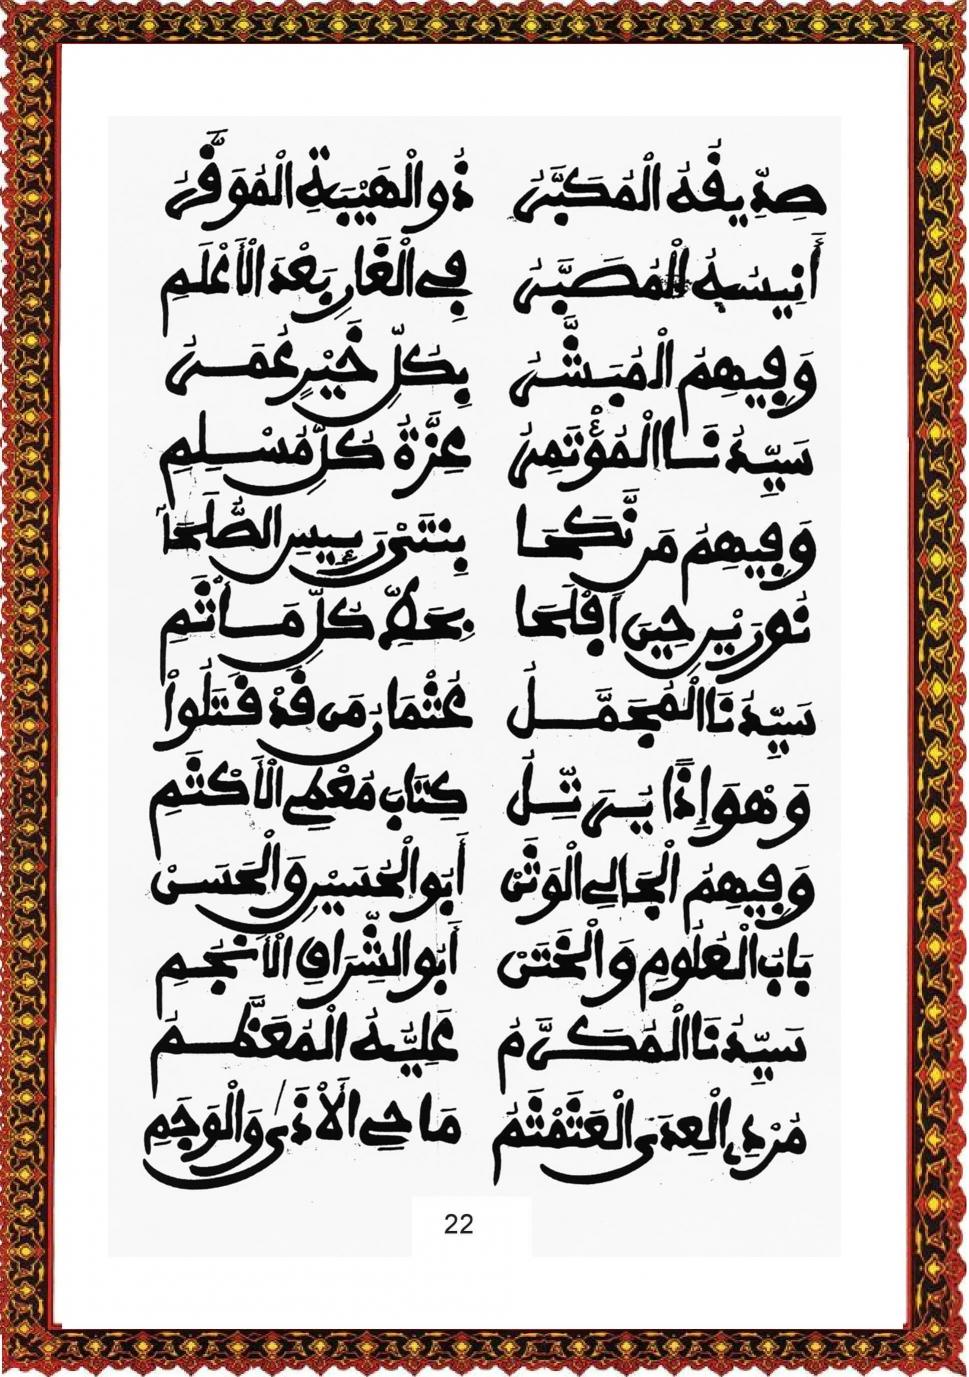 صِدِّيقُهُ الْمُكَبَّرُ ذُو الْهَيْبَةِ الْمُوَقَّرُ
أَنِيسُهُ الْمُصَبَّرُ فِي الْغَارِ بَعْدَ الْأَعْلَمِ
وَفِيهِمُ الْمُبَشَّرُ بِكُلِّ خَيْرٍ عُمَرُ
سَيِّدُنَا الْمُؤْتَمِرُ عِزَّةُ كُلِّ مُسْلِمِ
وَفِيهِمُ مَن نَّكَحَا بِنْتَيْ رَئِيسِ الصُّلَحَا
نُورَيْنِ حِينَ أَفْلَحَا بِحَلَا كُلِّ مَأْثَمِ
سَيِّدُنَا الْمُجَمَّلُ عُثْمَانُ مَن قَدْ قَتَلُوا
وَهْوَ إِذًا يُرَتِّلُ كِتَابَ مُعْطِي الْأَكْتَمِ
وَفِيهِمُ الْجَالِي الْوَثَنْ أَبُو الْحُسَيْنِ وَالْحَسَنْ
بَابُ الْعُلُومِ وَالْخَتَنْ أَبُو الشِّرَافِ الْأَنْجُمِ
سَيِّدُنَا الْمُكَرَّمُ عَلِيُّهُ الْمُعَظَّمُ
مُرْدِي الْعِدَى الْعَثَمْثَمُ مَاحِي الْأَذَى وَالْوَجَمِ
22